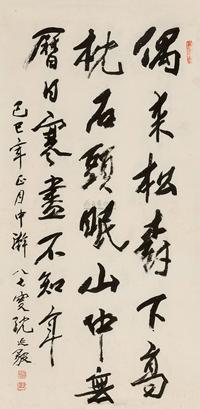 偶来松樹下高
枕石頭眠山中無
曆日寒盡不知年
己巳年正月中澣八七叟沈延毅